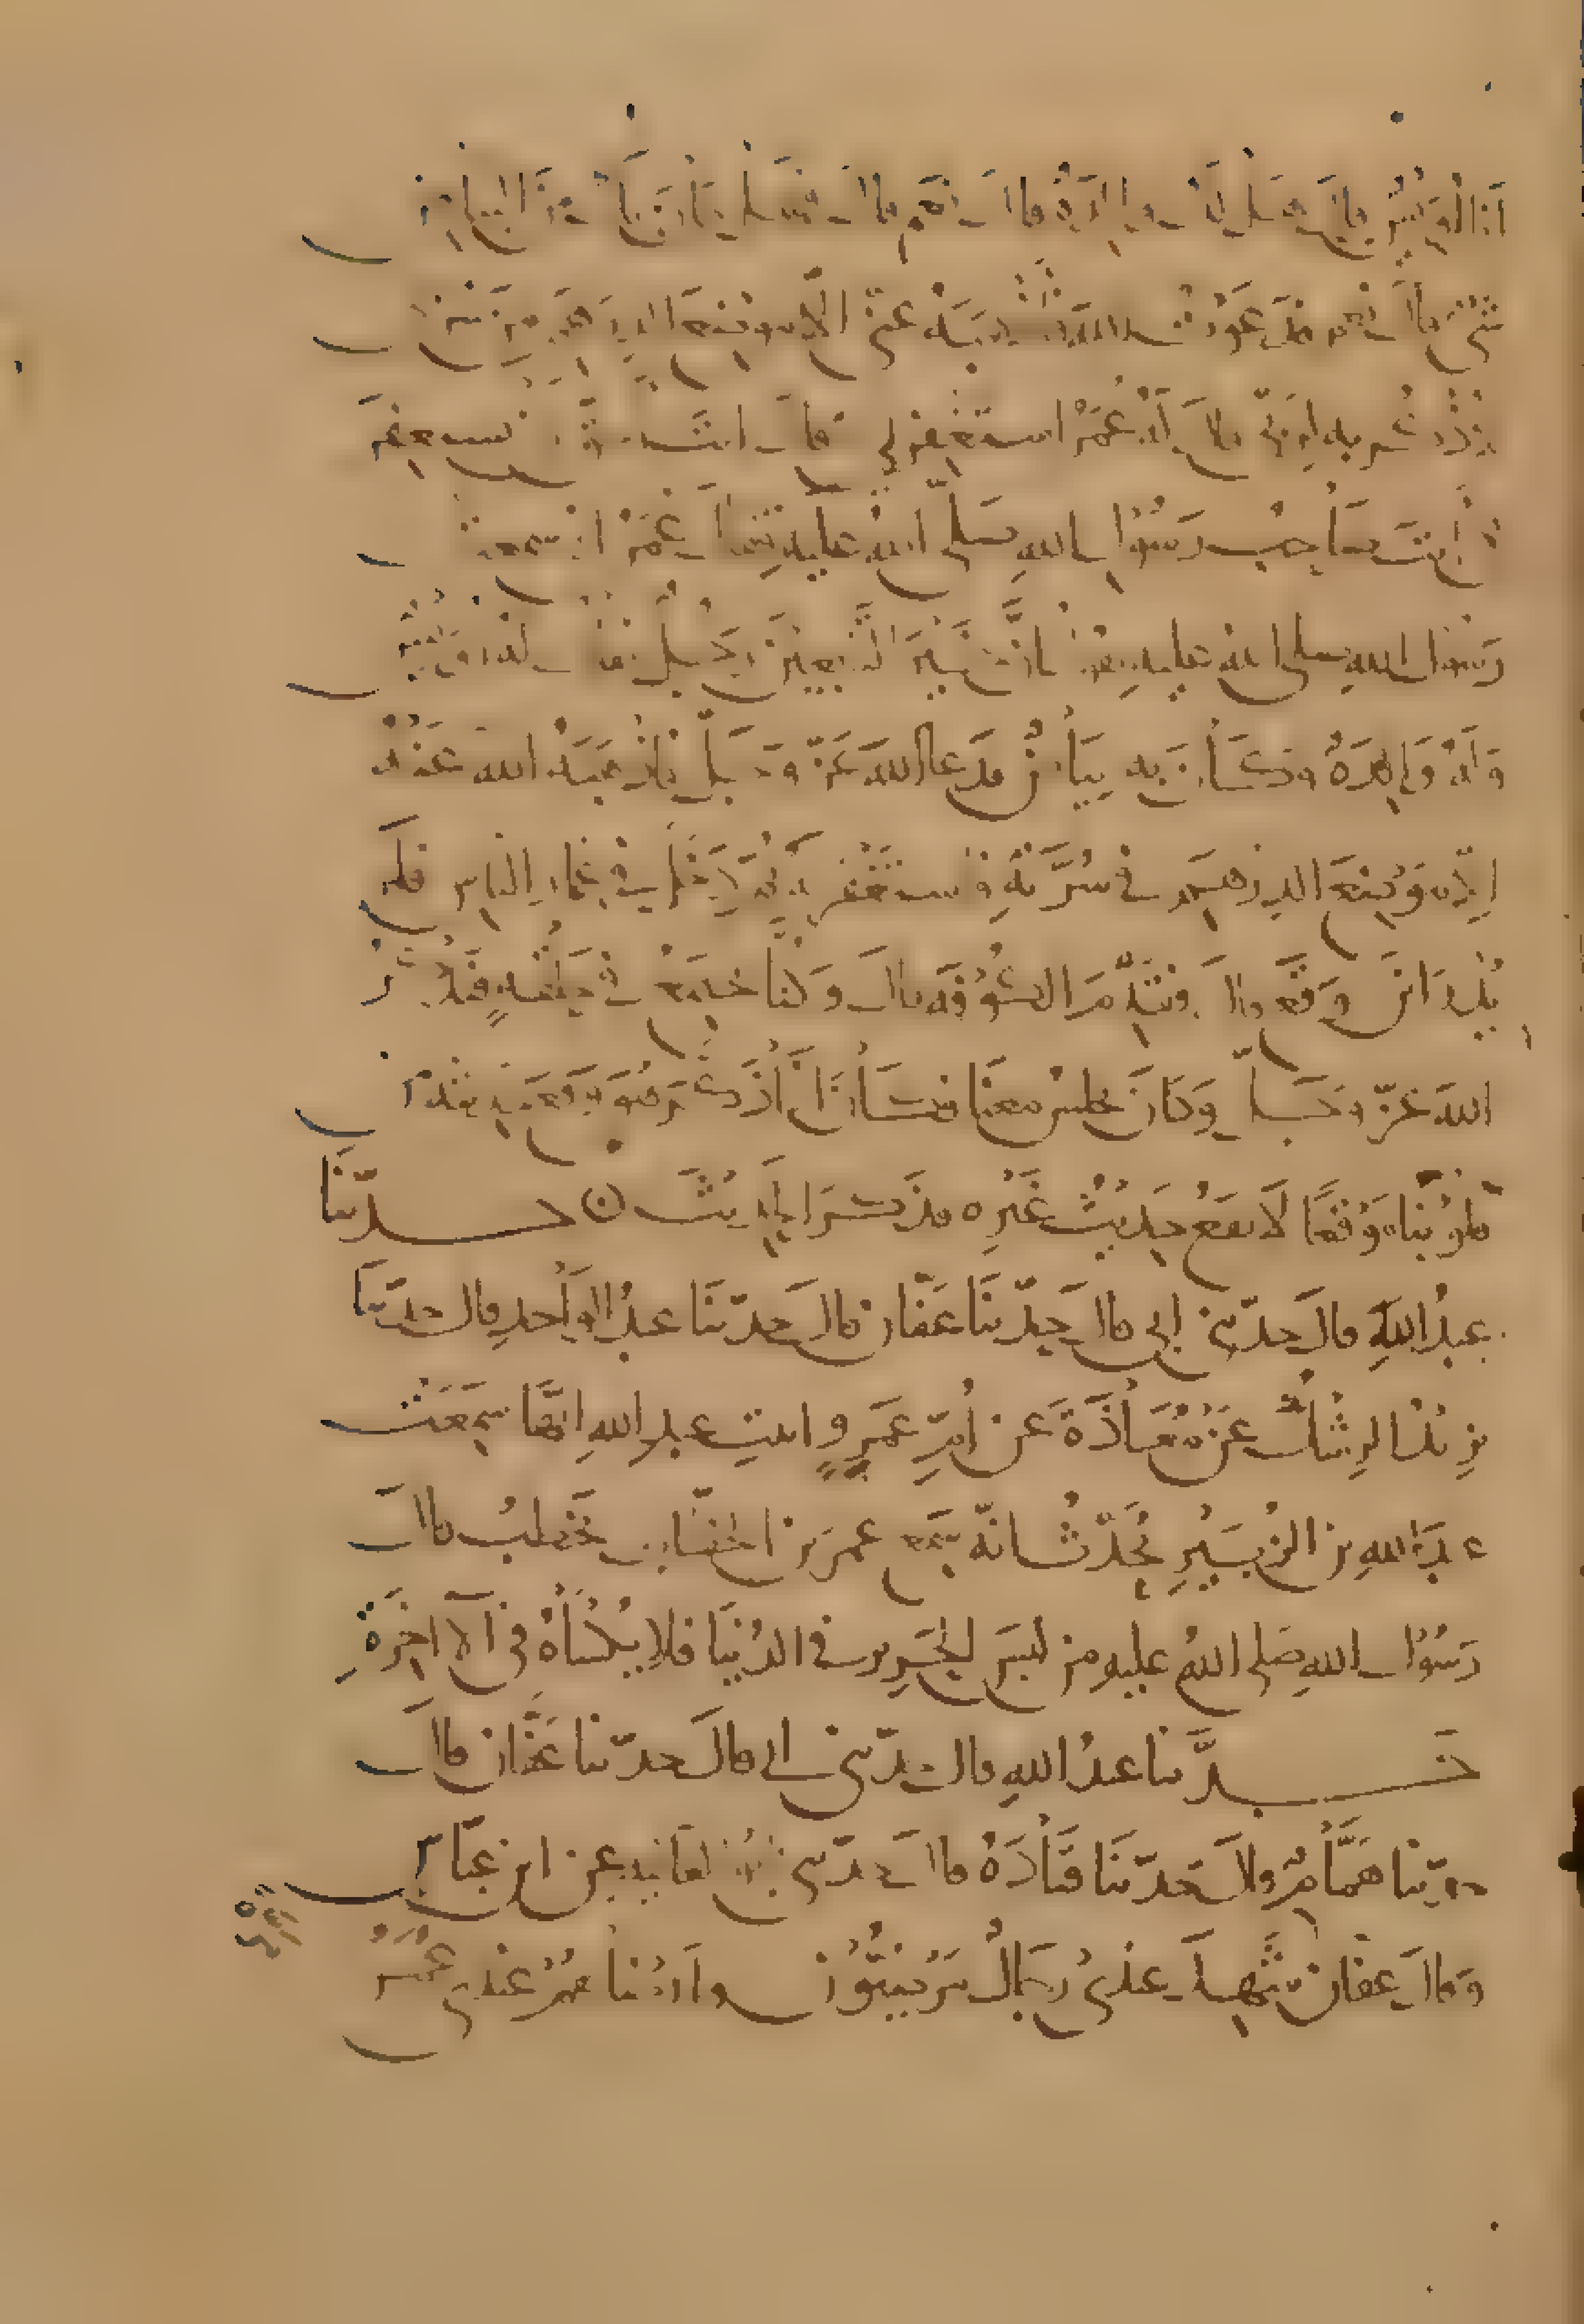 أنا أويس قال هل لك والدة قال نعم قال فهل كان بك من البياض
شيء قال نعم فدعوت الله فأذهبه عني إلا موضع الدرهم من سرتي
لأذكر به ربي قال له عمر استغفر لي قال أنت أحق أن تستغفر
لي أنت صاحب رسول الله صلى الله عليه فقال عمر إني سمعت
رسول الله صلى الله عليه يقول إن خير التابعين رجل يقال له أويس
وله والدة وكان به بياض فدعا الله عز وجل فأذهبه الله عنه
إلا موضع الدرهم في سرته فاستغفر له ثم دخل في غمار الناس فلم
يدر أين وقع قال فقدم الكوفة قال وكنا نجتمع في حلقة فنذكر
الله عز وجل وكان يجلس معنا فكان إذا ذكر هو وقع حديثه من
قلوبنا موقعا لا يقع حديث غيره فذكر الحديث ن حدثنا
عبد الله قال حدثني أبي قال حدثنا عفان قال حدثنا عبد الواحد قال حدثنا
يزيد الرشك عن معاذة عن أم عمرو ابنت عبد الله أنها سمعت
عبد الله بن الزبير يحدث أنه سمع عمر بن الخطاب يخطب قال قال
رسول الله صلى الله عليه من لبس الحرير في الدنيا فلا يكساه في الآخرة
حدثنا عبد الله قال حدثني أبي قال حدثنا عفان قال
حدثنا همام قال حدثنا قتادة قال حدثني أبو العالية عن ابن عباس
وقال عفان شهد عندي رجال مرضيون وأرضاهم عندي عمر